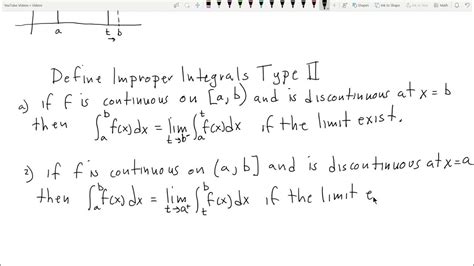 YouTube Videos • Videos
Shapes Ink to Shape Ink to Math
a t b
Define Improper Integrals Type II
a) if f is continuous on [a, b) and is discontinuous at x = b
then ∫_a^b f(x)dx = lim_{t→b⁻} ∫_a^t f(x)dx if the limit exist.
2) if f is continuous on (a, b] and is discontinuous at x=a
then ∫_a^b f(x)dx = lim_{t→a⁺} ∫_t^b f(x)dx if the limit e